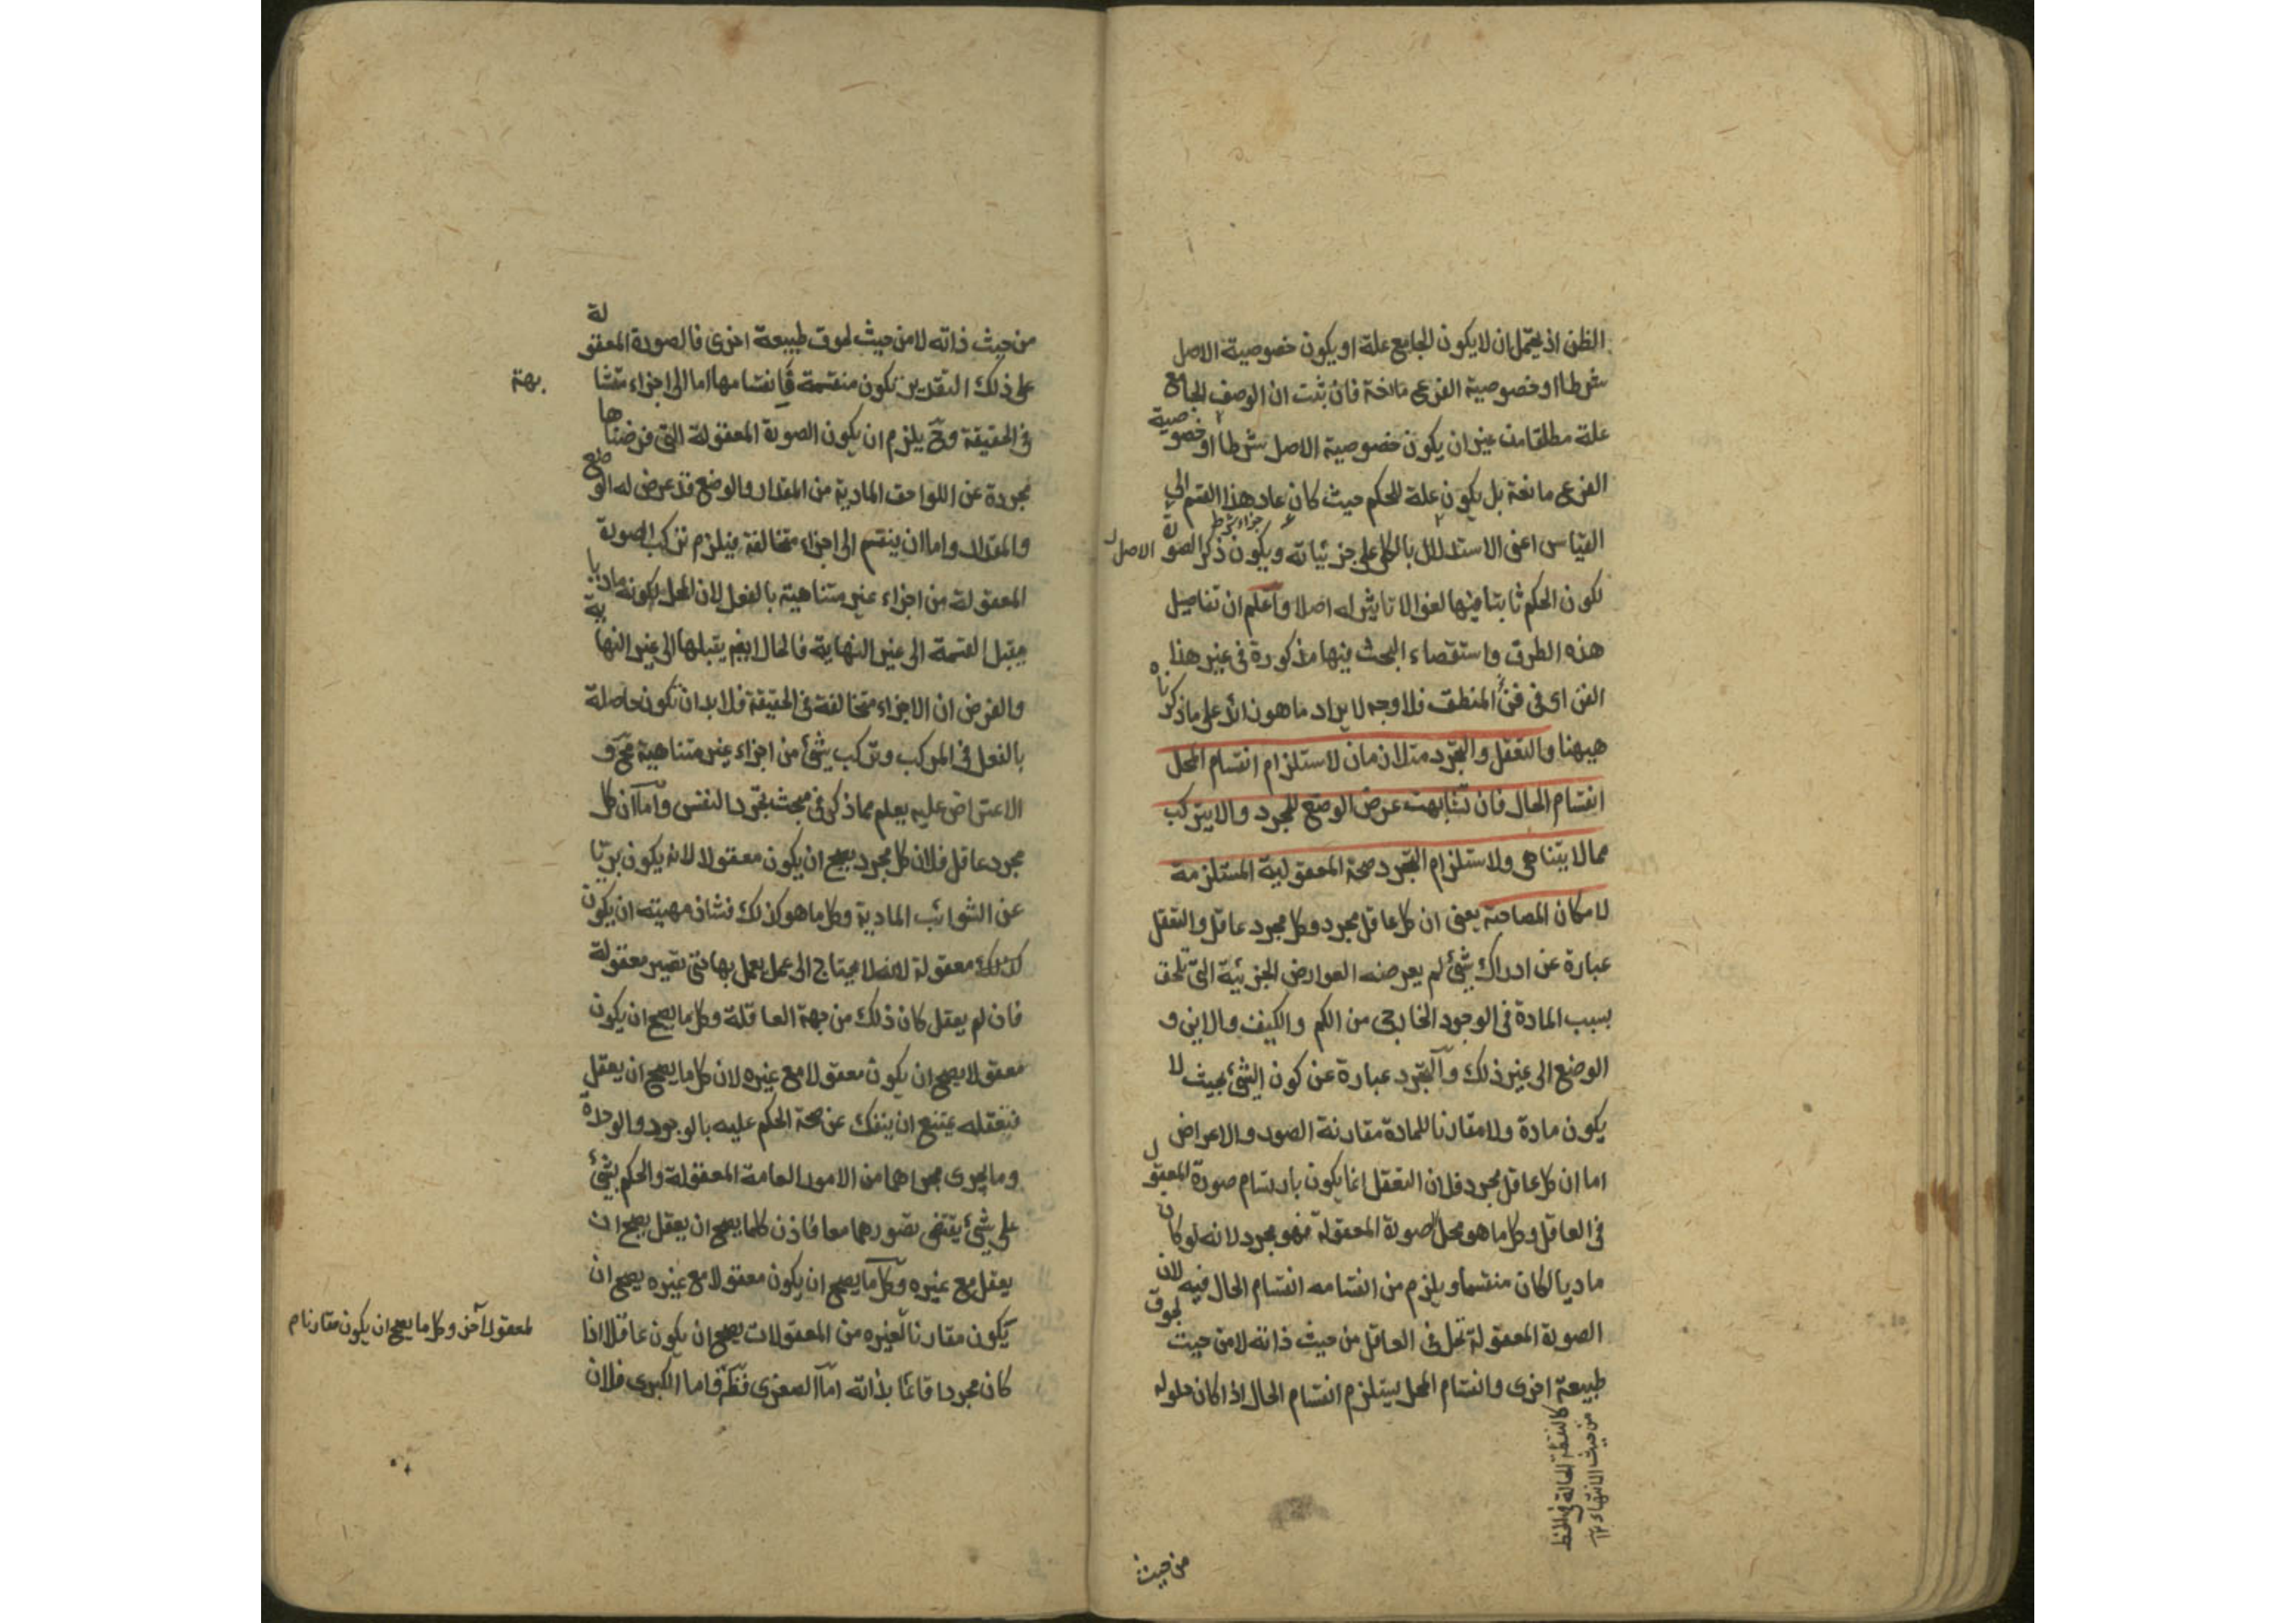 الظن اذ يحتمل ان لا يكون الجامع علة او يكون خصوصية الاصل
شرطا او خصوصية الفرع مانعة فان ثبت ان الوصف الجامع
علة مطلقا من غير ان يكون خصوصية الاصل شرطا او خصوصية
الفرع مانعة بل يكون علة للحكم حيث كان عاد هذا القسم الى
القياس اعنى الاستدلال بالكلى على جزئياته ويكون ذكر الصورة الاصل
جزاء شرط
لكون الحكم ثابتا فيها لغوا لا تاثير له اصلا واعلم ان تفاصيل
هذه الطرق واستقصاء البحث فيها مذكورة فى غير هذا
الفن اى فى فن المنطق فلا وجه لايراد ما هو زائد على ما ذكرناه
هيهنا والتعقل والتجرد متلازمان لاستلزام انقسام المحل
انقسام الحال فان تشابهت عرض الوضع للمجرد والا يتركب
مما لا يتناهى ولاستلزام التجرد صحة المعقولية المستلزمة
لامكان المصاحبة يعنى ان كل عاقل مجرد وكل مجرد عاقل والتعقل
عبارة عن ادراك شئ لم يعرضه العوارض الجزئية التى تلحق
بسبب المادة فى الوجود الخارجى من الكم والكيف والاين و
الوضع الى غير ذلك والتجرد عبارة عن كون الشئ بحيث لا
يكون مادة ولا مقارنا للمادة مقارنة الصور والاعراض
اما ان كل عاقل مجرد فلان التعقل انما يكون بارتسام صورة المعقول
فى العاقل وكل ما هو محل لصورة المعقولة فهو مجرد لانه لو كان
ماديا لكان منقسما ويلزم من انقسامه انقسام الحال فيه لان
الصورة المعقولة تحل فى العاقل من حيث ذاته لا من حيث لحوق
طبيعة اخرى وانقسام المحل يستلزم انقسام الحال اذا كان حلوله
كالنقطة الحالة فى الخط
من حيث الانتهاء ١٢
من حيث
من حيث ذاته لا من حيث لحوق طبيعة اخرى فالصورة المعقولة
على ذلك التقدير تكون منقسمة فانقسامها اما الى اجزاء متشابهة
فى الحقيقة وح يلزم ان يكون الصورة المعقولة التى فرضناها
مجردة عن اللواحق المادية من المقدار والوضع قد عرض له الوضع
والمقدار واما ان ينقسم الى اجزاء متخالفة فيلزم تركب الصورة
المعقولة من اجزاء غير متناهية بالفعل لان المحل لكونه ماديا
يقبل القسمة الى غير النهاية فالحال ايضا يقبلها الى غير النهاية
والفرض ان الاجزاء متخالفة فى الحقيقة فلا بد ان تكون حاصلة
بالفعل فى المركب وتركب شئ من اجزاء غير متناهية مح و
الاعتراض عليه يعلم مما ذكر فى مبحث تجرد النفس واما ان كل
مجرد عاقل فلان كل مجرد يصح ان يكون معقولا لانه يكون بريئا
عن الشوائب المادية وكل ما هو كذلك فشان مهيته ان يكون
كذلك معقولة لانه لا يحتاج الى عمل يعمل بها حتى تصير معقولة
فان لم يعقل كان ذلك من جهة العاقلة وكل ما يصح ان يكون
معقولا يصح ان يكون معقولا مع غيره لان كل ما يصح ان يعقل
فتعقله يمتنع ان ينفك عن صحة الحكم عليه بالوجود والوحدة
وما يجرى مجراهما من الامور العامة المعقولة والحكم بشئ
على شئ يقتضى تصورهما معا فاذن كلما يصح ان يعقل يصح ان
يعقل مع غيره وكل ما يصح ان يكون معقولا مع غيره يصح ان
يكون مقارنا لغيره من المعقولات يصح ان يكون عاقلا اذا
لمعقول آخر وكل ما يصح ان يكون مقارنا م
كان مجردا قائما بذاته اما الصغرى فظ واما الكبرى فلان